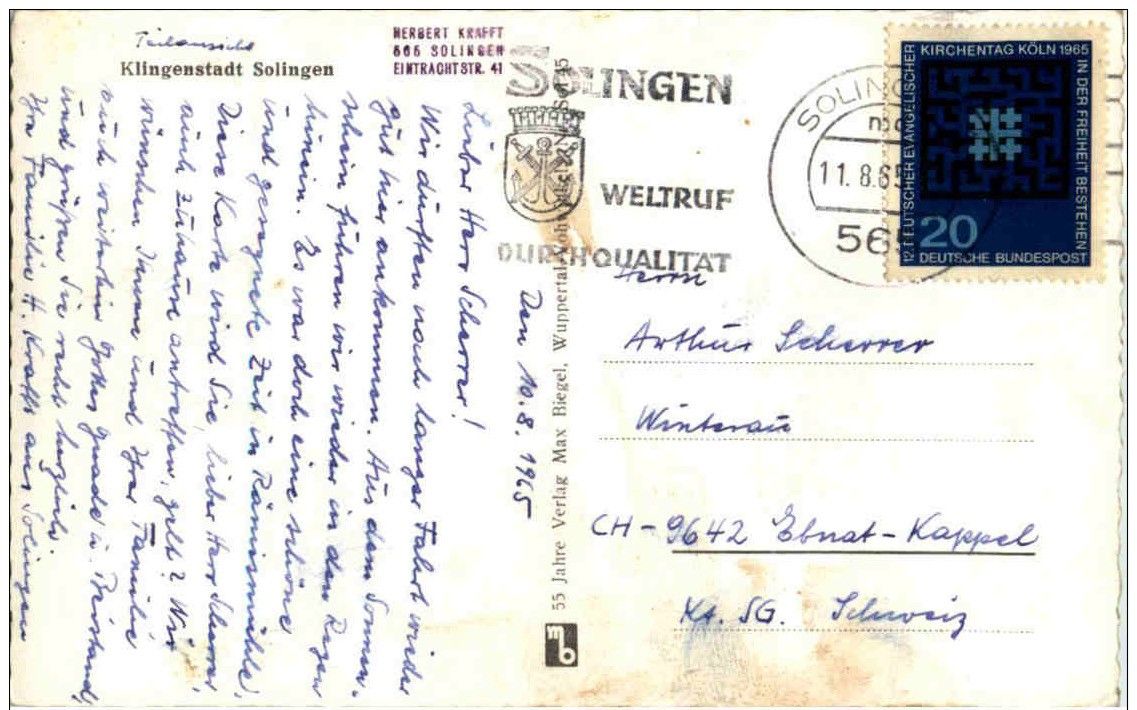 Teilansicht
Klingenstadt Solingen
HERBERT KRAFFT
565 SOLINGEN
EINTRACHTSTR. 41
SOLINGEN
WELTRUF
DURCH QUALITÄT
SOLINGEN
11.8.65
565
12. DEUTSCHER EVANGELISCHER
KIRCHENTAG KÖLN 1965
IN DER FREIHEIT BESTEHEN
20
DEUTSCHE BUNDESPOST
Den 10.8.1965
Lieber Herr Scherrer!
Wir durften nach langer Fahrt wieder
gut hier ankommen. Aus dem Sonnen-
schein fuhren wir wieder in den Regen
hinein. Es war doch eine schöne
und gesegnete Zeit in Rämismühle.
Diese Karte wird Sie, lieber Herr Scherrer,
auch zuhause antreffen, gelt? Wir
wünschen Ihnen und Ihrer Familie
auch weiterhin Gottes Gnade u. Beistand,
und grüßen Sie recht herzlich.
Ihre Familie H. Krafft aus Solingen
55 Jahre Verlag Max Biegel, Wuppertal-Vohwinkel
mb
Herrn
Arthur Scherrer
Winterau
CH-9642 Ebnat-Kappel
Kt. SG. Schweiz